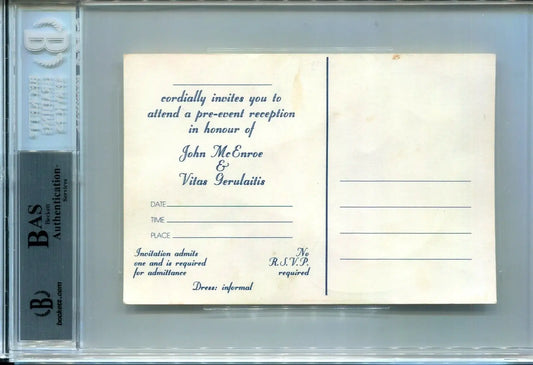 cordially invites you to
attend a pre-event reception
in honour of
John McEnroe
&
Vitas Gerulaitis
DATE
TIME
PLACE
Invitation admits
one and is required
for admittance
No
R.S.V.P.
required
Dress: informal
B
BAS
Beckett
Authentication
Services
B
beckett.com